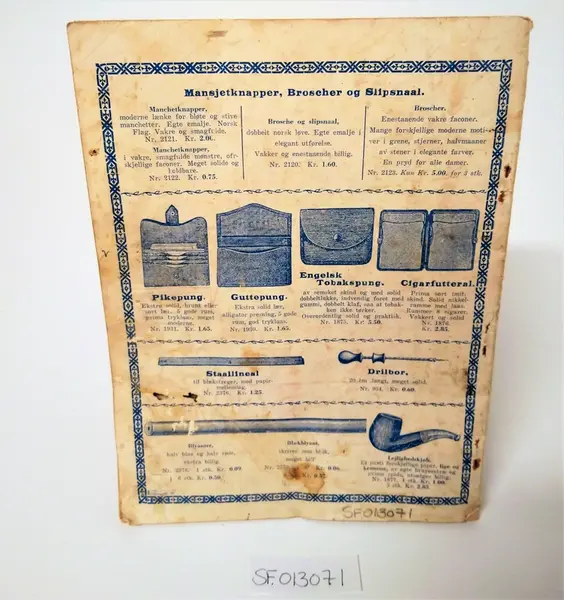 Mansjetknapper, Broscher og Slipsnaal.
Manchetknapper,
moderne lænke for bløte og stive
manchetter. Egte emalje. Norsk
Flag. Vakre og smagfulde.
Nr. 2121. Kr. 2.00.
Manchetknapper,
i vakre, smagfulde mønstre,
skjellige faconer. Meget solide og
holdbare.
Nr. 2122. Kr. 0.75.
Brosche og slipsnaal,
dobbeit norsk løve. Egte emalje i
elegant utførelse.
Vakker og enestaaende billig.
Nr. 2120. Kr. 1.60.
Broscher.
Enestaaende vakre faconer.
Mange forskjellige moderne moti-
ver i grene, stjerner, halvmaaner
av stener i elegante farver.
En pryd for alle damer.
Nr. 2123. Kun Kr. 5.00. for 3 stk.
Pikepung.
Ekstra solid, brunt eller
sort lær, 5 gode rum,
prima tryklaas, meget
moderne.
Nr. 1911. Kr. 1.65.
Guttepung.
Ekstra solid lær,
aligator presning, 5 gode
rum, god tryklaas.
Nr. 1909. Kr. 1.65.
Engelsk
Tobakspung.
av semsket skind og med solid
dobbeltlukke, indvendig foret med
gummi, dobbelt klaf, saa at tobak-
ken ikke tørker.
Overordentlig solid og praktisk.
Nr. 1875. Kr. 3.50.
Cigarfutteral.
Prima sort imit.
skind. Solid nikkel-
ramme med laas.
Rummer 8 cigarer.
Vakkert og solid
Nr. 1876.
Kr. 2.85.
Staallineal
til blækstreger, med papir-
Nr. 2376. Kr. 1.25.
Drilbor.
20 cm. langt, meget solid.
Nr. 934. Kr. 0.60.
Blyanter,
ekstra billig.
1 stk. Kr. 0.09.
6 stk. Kr. 0.50.
meget
Kr. 0.06.
Leilighedskjøb.
Nr. 1871. 1 stk. Kr. 1.00.
3 stk. Kr. 2.85.
SF.013071
SF.013071